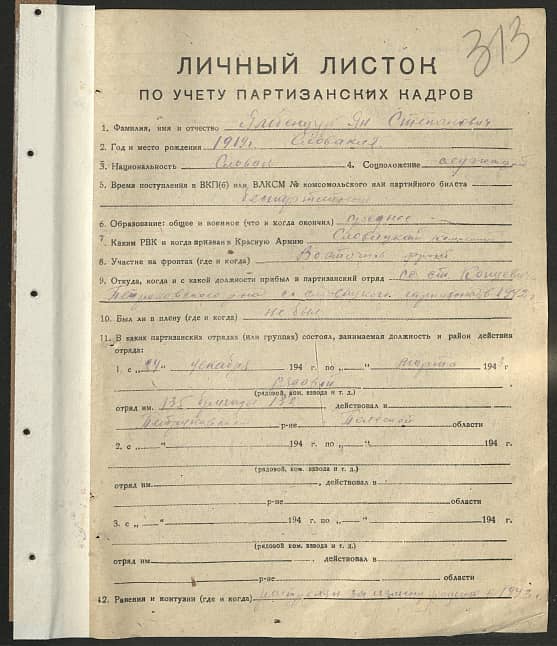 313
ЛИЧНЫЙ ЛИСТОК
ПО УЧЕТУ ПАРТИЗАНСКИХ КАДРОВ
1. Фамилия, имя и отчество Ян Степанович
2. Год и место рождения 1912г. Словакия
3. Национальность Словак 4. Соцположение служащий
5. Время поступления в ВКП(б) или ВЛКСМ № комсомольского или партийного билета
беспартийный
6. Образование: общее и военное (что и когда окончил) среднее
7. Каким РВК и когда призван в Красную Армию Словацкой
8. Участие на фронтах (где и когда)
9. Откуда, когда и с какой должности прибыл в партизанский отряд со ст.
Петриковского р-на словацкого гарнизона в 1942 г.
10. Был ли в плену (где и когда) не был
11. В каких партизанских отрядах (или группах) состоял, занимаемая должность и район действия
отряда:
1. с „24“ декабря 194 г. по „ “ марта 194 г.
рядовой
(рядовой, ком. взвода и т. д.)
отряд им. 135 бригады 132 действовал в
Петриковском р-не Полесской области
2. с „ “ 194 г. по „ “ 194 г.
(рядовой, ком. взвода и т. д.)
отряд им. , действовал в
р-не области
3. с „ “ 194 г. по „ “ 194 г.
(рядовой ком. взвода и т. д.)
отряд им. , действовал в
р-не области
12. Ранения и контузии (где и когда) в 1943 г.